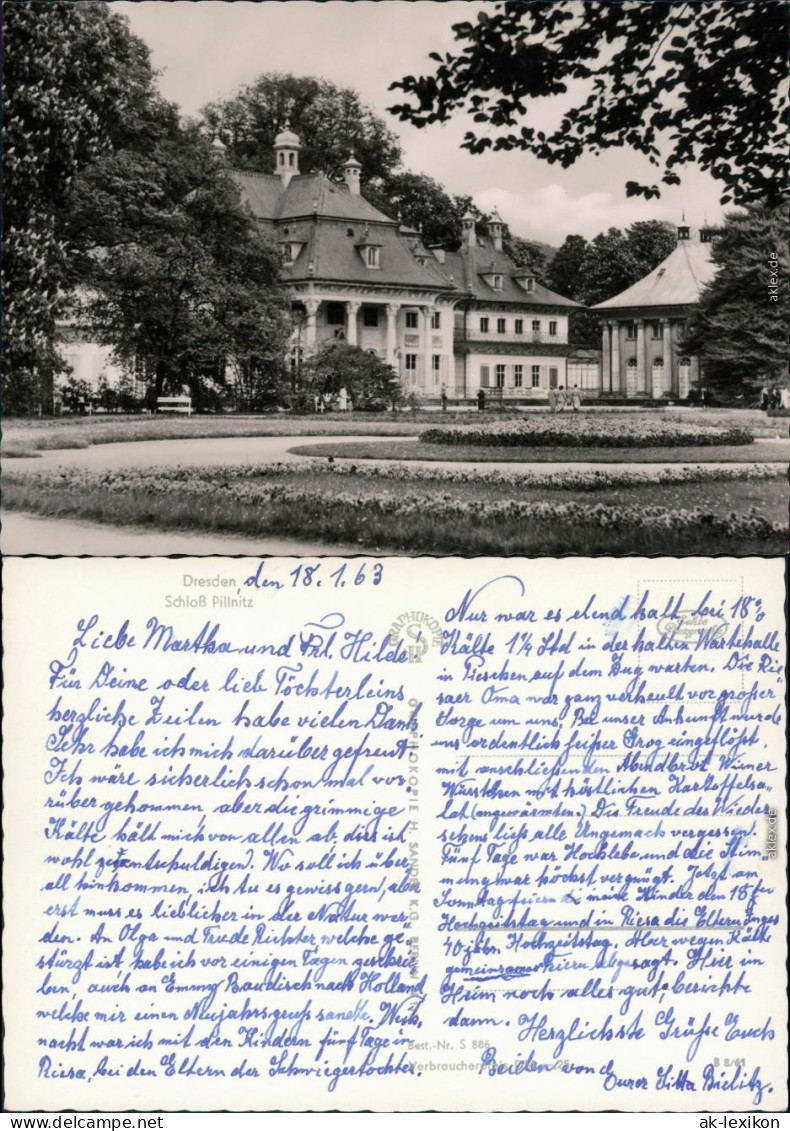 aklex.de
Dresden, den 18.1.63
Schloß Pillnitz
Liebe Martha und Frl. Hilde.
Für Deine oder lieb Töchterleins
herzliche Zeilen habe vielen Dank
Sehr habe ich mich darüber gefreut
Ich wäre sicherlich schon mal vor-
rüber gekommen, aber die grimmige
Kälte hält mich von allen ab, dies ist
wohl zu entschuldigen. Wo soll ich über-
all hinkommen, ich tu es gewiss gern, aber
erst muss es lieblicher in der Natur wer-
den. An Olga und Trude Richter, welche ge-
stürzt ist, habe ich vor einigen Tagen geschrie-
ben, auch an Emmy Baudisch nach Holland
welche mir einen Neujahrsgruss sandte. Weih-
nacht war ich mit den Kindern fünf Tage in
Riesa, bei den Eltern der Schwiegertochter.
GRAPHOKOPIE
GRAPHOKOPIE H. SANDER KG., BERLIN
Best.-Nr. S 886
Verbraucherpreis
Echte
Nur war es elend kalt bei 18%
Kälte 1¼ Std in der kalten Wartehalle
in Pieschen, auf dem Zug warten. Die Rie-
saer Oma war ganz verheult vor großer
Sorge um uns. Bei unser Ankunft wurde
uns ordentlich heißer Grog eingeflößt.
mit anschließenden Abendbrot Wiener
Würstchen mit köstlichen Kartoffelsa-
lat (angewärmten). Die Freude des Wieder-
sehens ließ alle Ungemach vergessen.
Fünf Tage war Hochlebe und die Stim-
mung war höchst vergnügt. Jetzt am
Sonntag feiern meine Kinder den 15
Hochzeitstag und in Riesa die Eltern
40 jähr. Hochzeitstag. Aber wegen Kälte
gemeinsames Feiern abgesagt. Hier in
Heim noch alles gut, berichte
dann. Herzlichste Grüße Euch
Beiden von Eurer Bielitz.
B 8/61
aklex.de
www.ak-lexikon.de
ak-lexikon